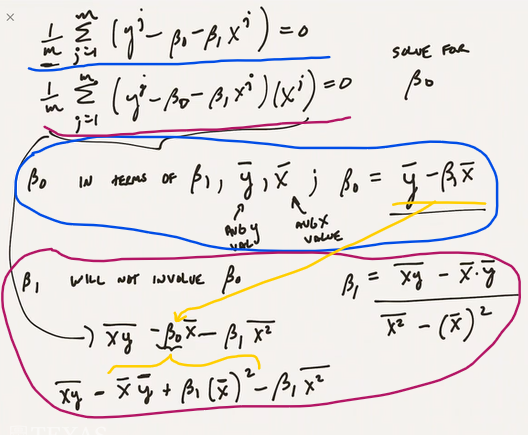 1/m Σ_{j=1}^{m} (y^j - β₀ - β₁ x^j) = 0
SOLVE FOR
β₀
1/m Σ_{j=1}^{m} (y^j - β₀ - β₁ x^j)(x^j) = 0
β₀ IN TERMS OF β₁, y̅, x̅ ; β₀ = y̅ - β₁x̅
AVG y
VALU
AVG X
VALUE
β₁ WILL NOT INVOLVE β₀
β₁ = (x̅y̅ - x̅·y̅) / (x̅²̅ - (x̅)²)
x̅y̅ - β₀x̅ - β₁ x̅²̅
x̅y̅ - x̅ y̅ + β₁(x̅)² - β₁ x̅²̅